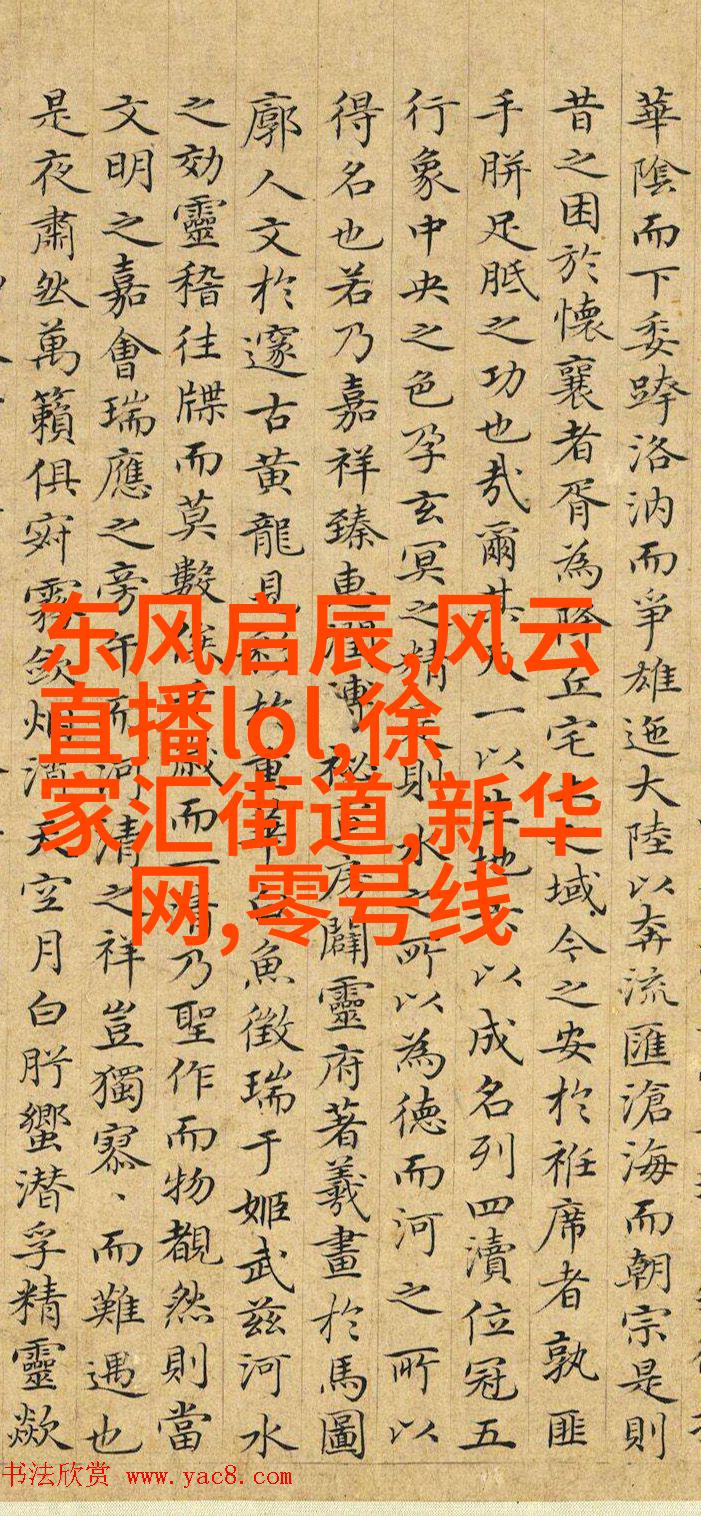 華陰而下委跨洛汭而爭雄迤大陸以奔流匯滄海而朝宗是則
昔之困於懷襄者胥為降丘宅土之域今之安於袵席者孰匪
手胼足胝之功也哉爾其天一以生地六以成名列四瀆位冠五
行象中央之色孕玄冥之精是則水之所以為德而河之所以
得名也若乃嘉祥臻秘房闢靈府著羲畫於馬圖
廓人文於邃古黃龍見重華白魚徵瑞于姬武茲河水
之効靈稽往牒而莫數俟千歲而一清乃聖作而物覩然則當
文明之嘉會瑞應之旁午而河清之祥豈獨寥、而難遇也
是夜肅然萬籟俱寂霧歛烟消天空月白肸蠁潛孚精靈歘
东风启辰,风云
直播lol,徐
家汇街道,新华
网,零号线
书法欣赏 www.yac8.com